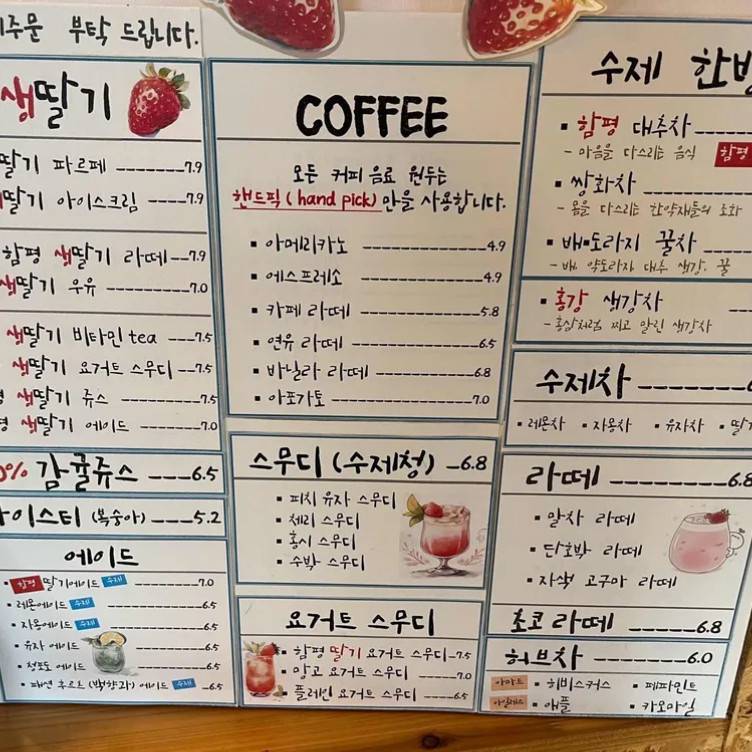 주문 부탁 드립니다.
생딸기
딸기 파르페 -------- 7.9
딸기 아이스크림 ---- 7.9
함평 생딸기 라떼 -- 7.9
생딸기 우유 ------- 7.0
생딸기 비타민 tea ---- 7.5
생딸기 요거트 스무디 -- 7.5
생딸기 쥬스 --------- 7.5
생딸기 에이드 ------- 7.0
0% 감귤쥬스 --- 6.5
아이스티 (복숭아) ---- 5.2
에이드
함평 딸기에이드 수제 -------- 7.0
레몬에이드 수제 --------- 6.5
자몽에이드 수제 --------- 6.5
유자 에이드 --------- 6.5
청포도 에이드 --------- 6.5
패션 후르츠 (백향과) 에이드 수제 -- 6.5
COFFEE
모든 커피 음료 원두는
핸드픽 ( hand pick) 만을 사용합니다.
아메리카노 -------------- 4.9
에스프레소 -------------- 4.9
카페 라떼 -------------- 5.8
연유 라떼 -------------- 6.5
바닐라 라떼 ------------ 6.8
아포가토 -------------- 7.0
스무디 (수제청) _6.8
피치 유자 스무디
체리 스무디
홍시 스무디
수박 스무디
요거트 스무디
함평 딸기 요거트 스무디 -- 7.5
망고 요거트 스무디 ------ 7.0
플레인 요거트 스무디 ---- 6.5
수제 한방
함평 대추차
- 마음을 다스리는 음식 함평
쌍화차
- 몸을 다스리는 한약재들의 조화
배•도라지 꿀차
- 배, 약도라지 대추 생강. 꿀
홍강 생강차
- 홍삼처럼 찌고 말린 생강차
수제차
레몬차 자몽차 유자차 딸기
라떼 -------- 6.8
말차 라떼
단호박 라떼
자색 고구마 라떼
초코 라떼 ------ 6.8
허브차 ------ 6.0
히비스커스 페퍼민트
애플 카모마일